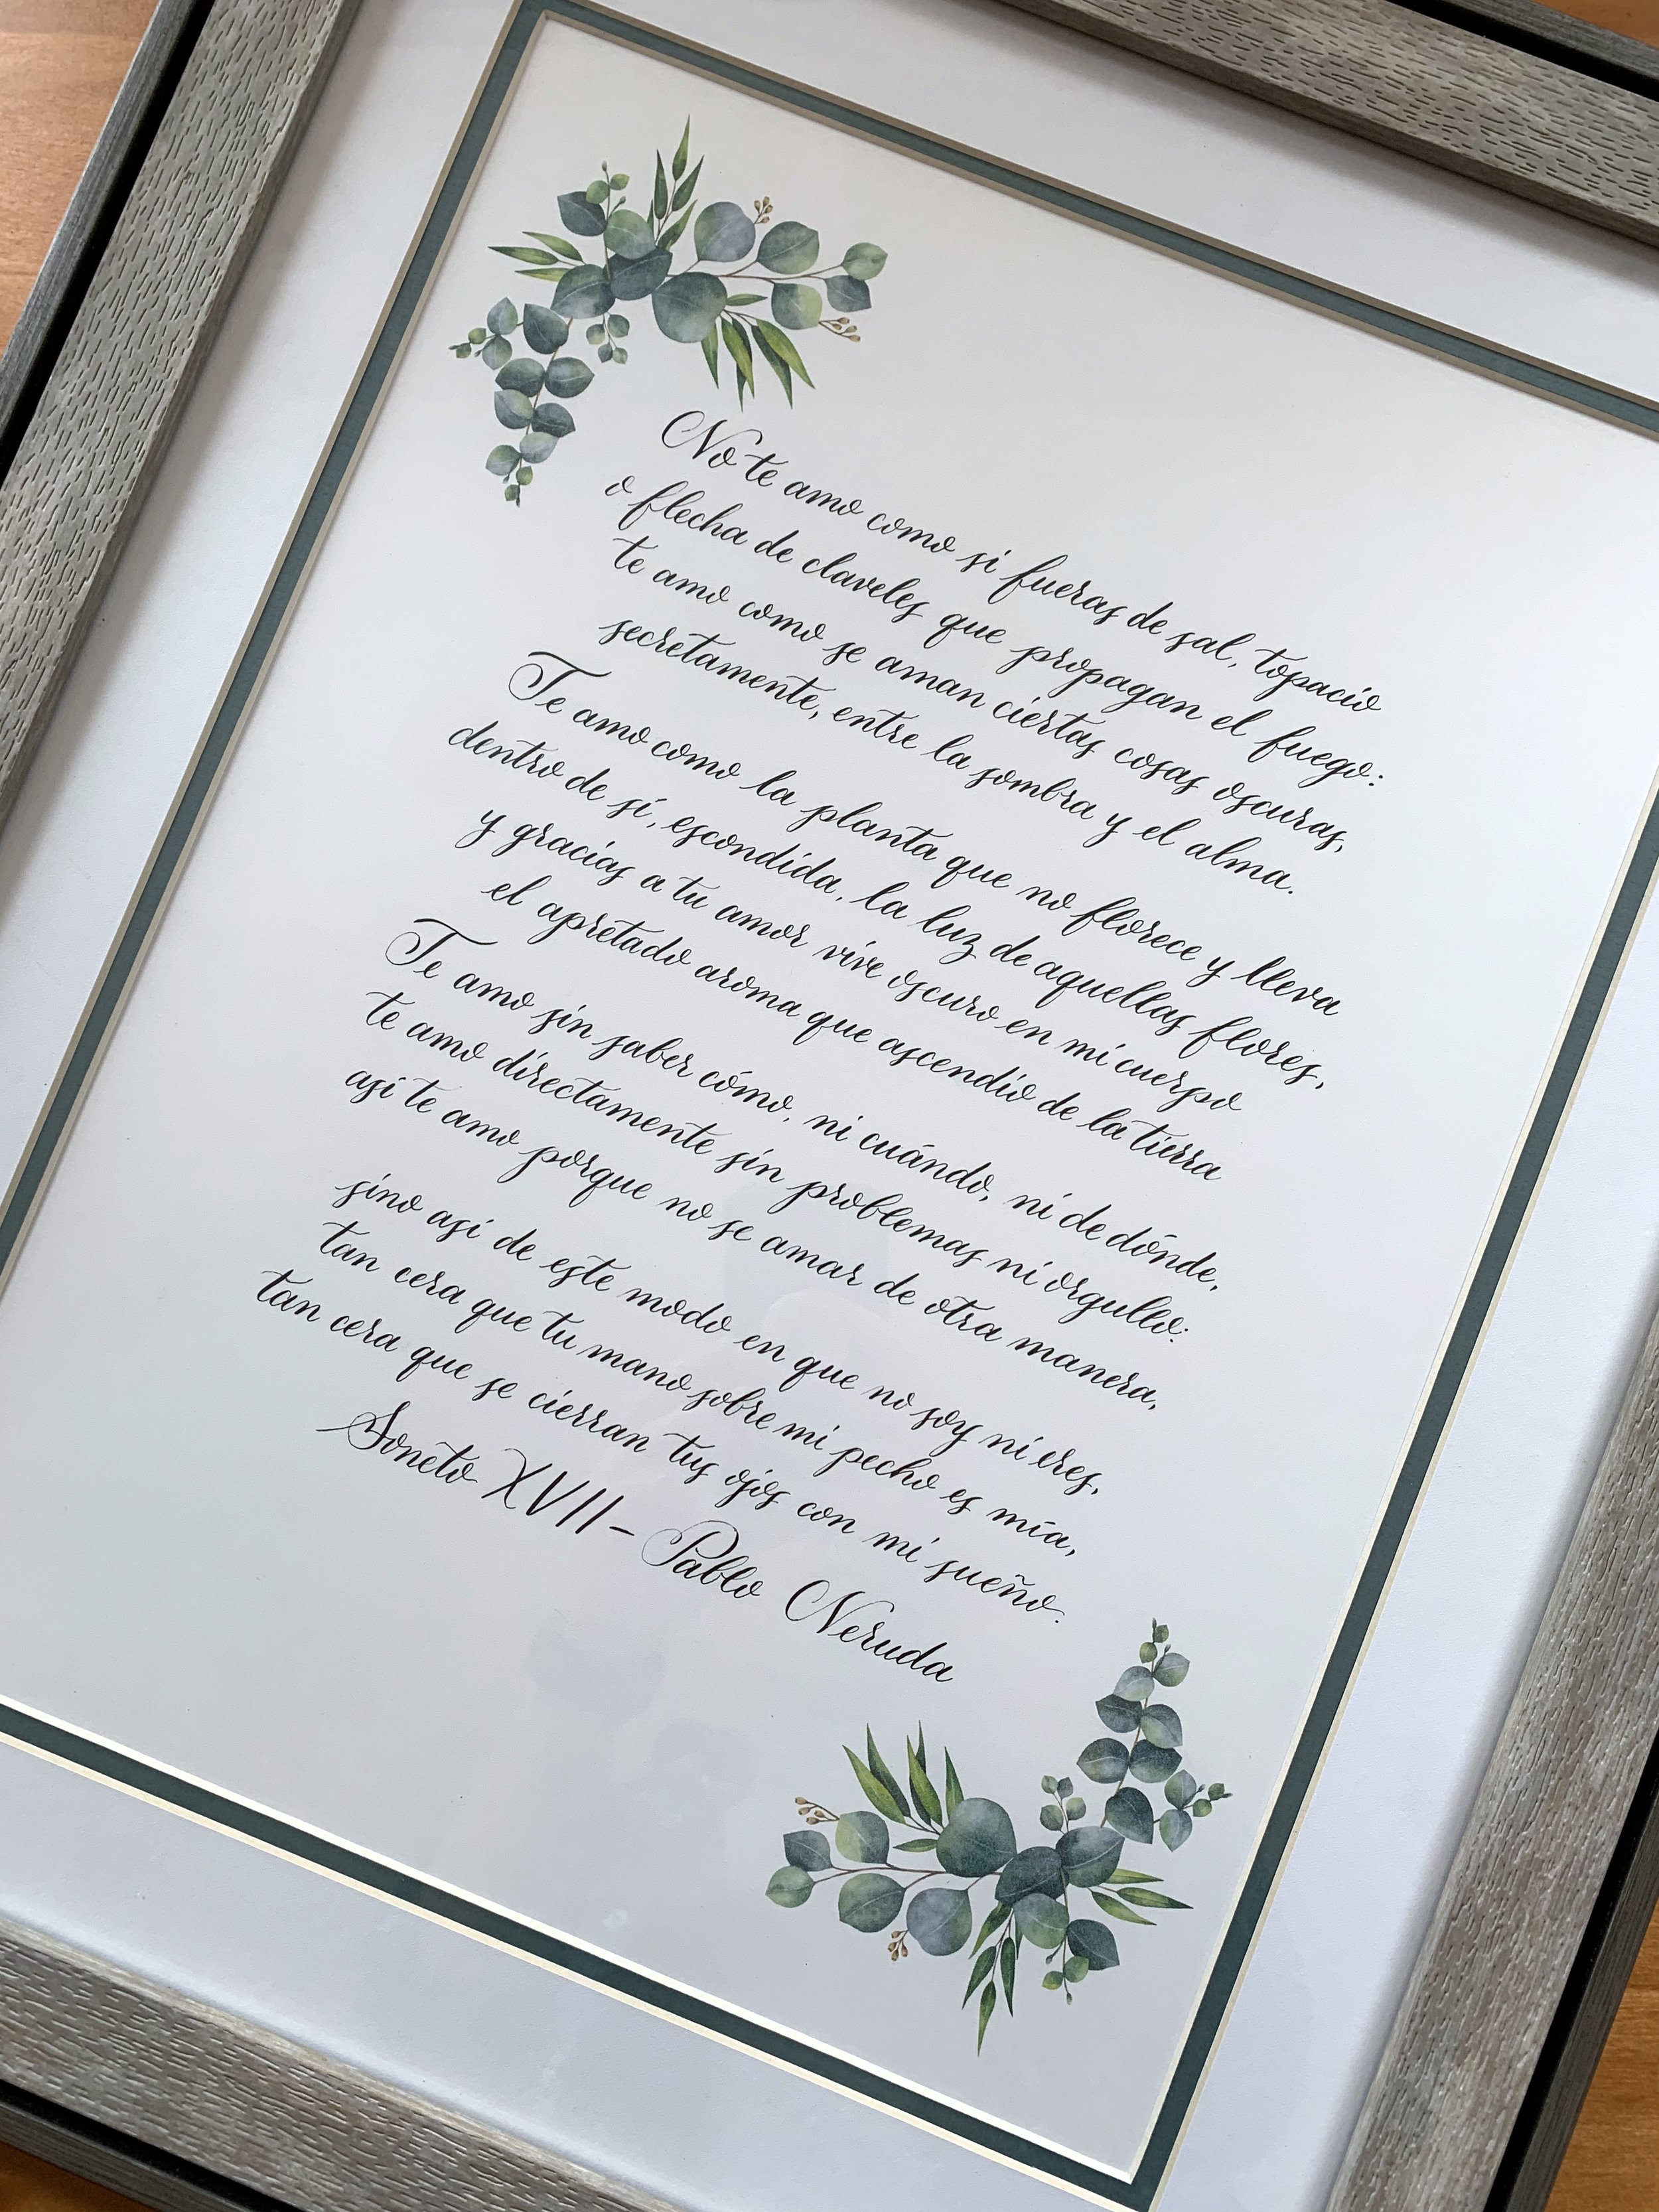 No te amo como si fueras de sal, topacio
o flecha de claveles que propagan el fuego:
te amo como se aman ciertas cosas oscuras,
secretamente, entre la sombra y el alma.
Te amo como la planta que no florece y lleva
dentro de sí, escondida, la luz de aquellas flores,
y gracias a tu amor vive oscuro en mi cuerpo
el apretado aroma que ascendió de la tierra
Te amo sin saber cómo, ni cuándo, ni de dónde,
te amo directamente sin problemas ni orgullo:
así te amo porque no se amar de otra manera,
sino así de este modo en que no soy ni eres,
tan cera que tu mano sobre mi pecho es mía,
tan cera que se cierran tus ojos con mi sueño.
Soneto XVII - Pablo Neruda